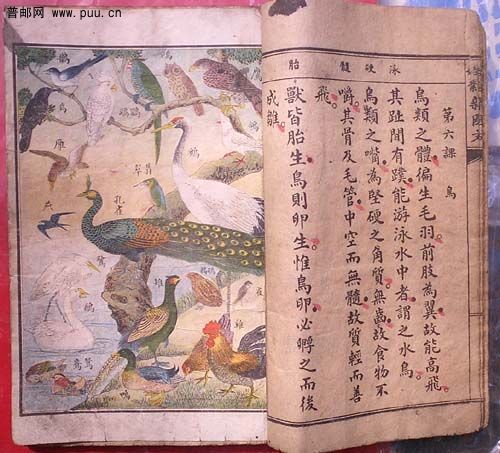 普邮网
www.puu.cn
泳 硬 髓 胎
第六課 鳥
鳥類之體徧生毛羽前肢為翼故能高飛
其趾間有蹼能游泳水中者謂之水鳥
鳥類之嘴為堅硬之角質無齒故食物不
嚼其骨及毛管中空而無髓故質輕而善
飛
獸皆胎生鳥則卵生惟鳥卵必孵之而後
成雛
鸚鵡
雁
鶴
翡翠
孔雀
燕
雉
鴛鴦